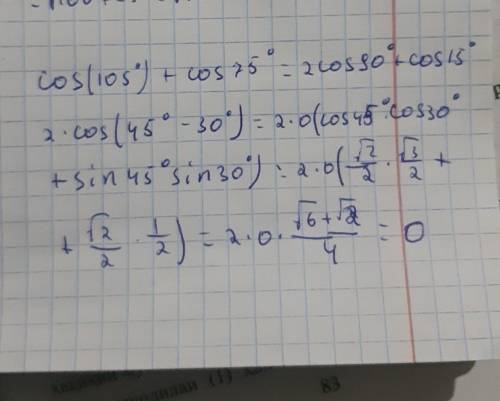 cos(105°) + cos75° = 2cos90° + cos15°
2·cos(45° - 30°) = 2·0(cos45°·cos30°
+ sin45° sin30°) = 2·0(√2/2 · √3/2 +
+ √2/2 · 1/2) = 2·0· (√6+√2)/4 = 0
(1)
83